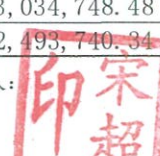 3,034,748.48
2,493,740.34
宋超
印